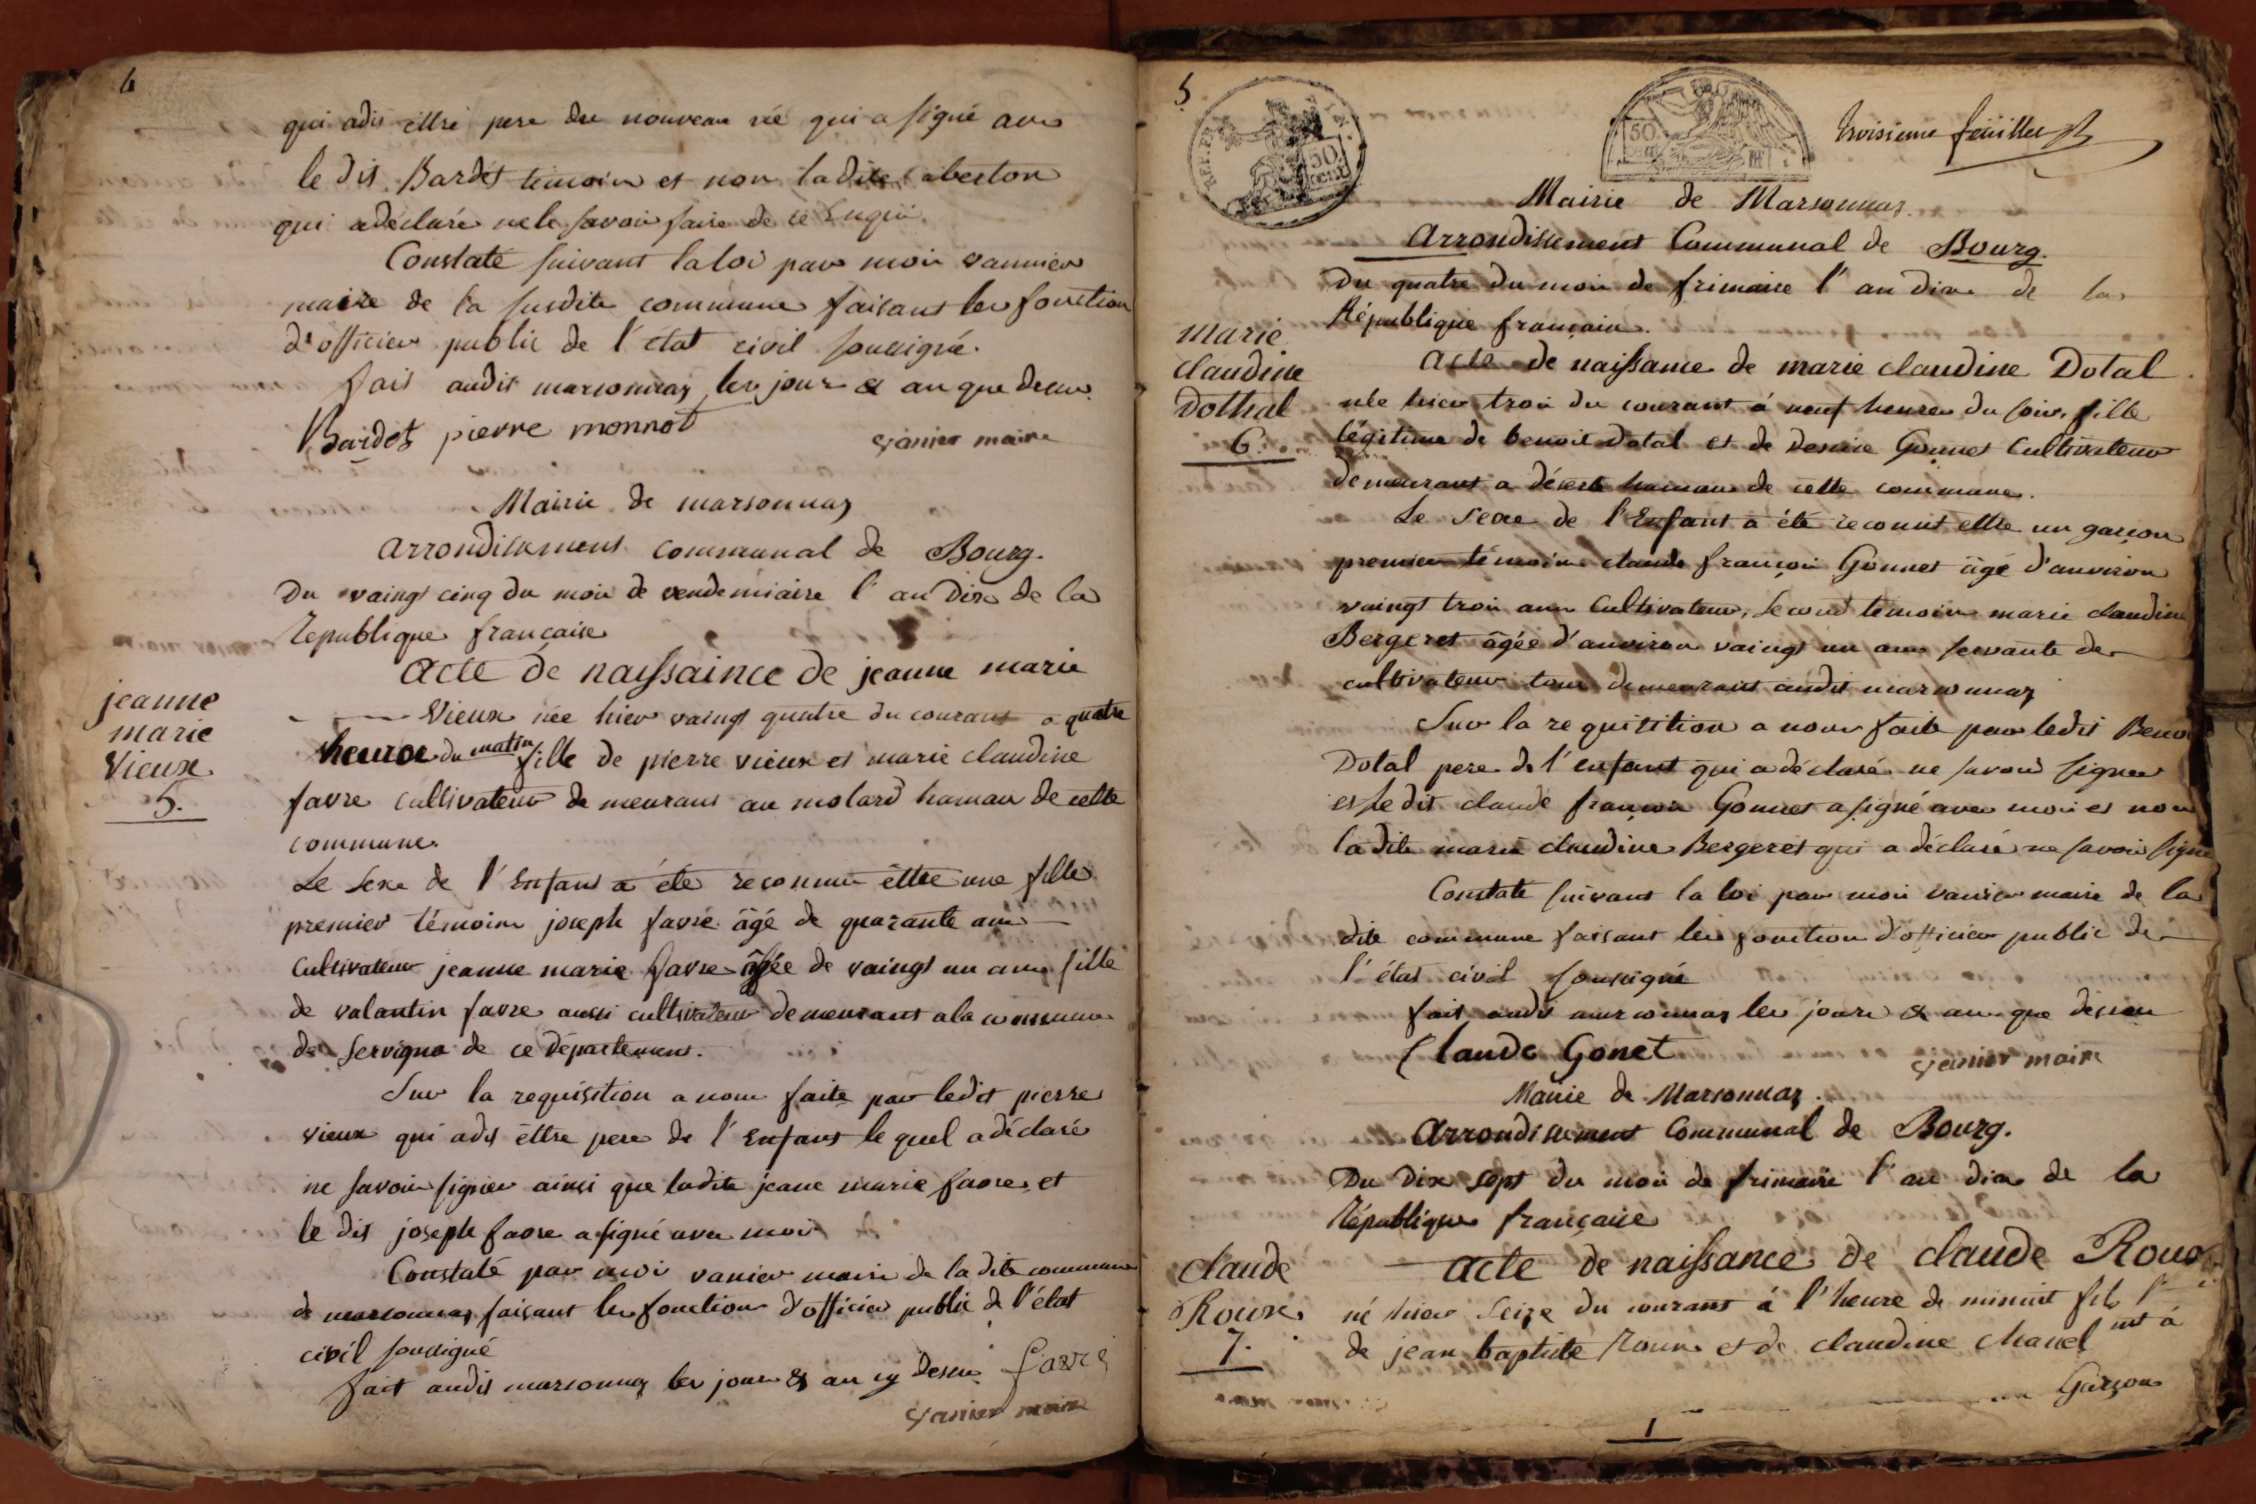 qui adit êttre pere du nouveau né qui a signé avec
le dit Bardet temoin et non ladite
qui adéclaré ne le savoir faire de ce enquis.
Constaté suivant la loi par moi vannier
maire de la susdite commune faisant les fonction
d'officier public de l'état civil soussigné.
fait audit marsonnay les jour & an que dessus.
Bardet pierre monnot
vanier maire
Mairie de marsonnay
arrondissement communal de Bourg.
Du vaingt cinq du mois de vendemiaire l'an Dix de la
République française
acte de naissaince de jeanne marie
Vieux née hier vaingt quatre du courant a quatre
heures du matin fille de pierre vieux et marie claudine
favre cultivateur demeurant au molard hamau de cette
commune.
Le Sexe de l'Enfant a été reconnu êttre une fille
premier témoin joseph favre âgé de quarante ans
Cultivateur jeanne marie favre âgée de vaingt un ans fille
de valantin favre aussi cultivateur demeurant a la commune
de Servigna de ce Département.
Sur la requisition a nous faite par ledit pierre
vieux qui adit êttre pere de l'Enfant le quel a déclaré
ne savoir signer ainsi que ladite jeane marie favre et
le dit joseph favre a signé avec moi
Constaté par moi vanier maire de la dite commune
de marsonnay faisant les fonction d'officier public de l'état
civil soussigné
fait audit marsonnay les jour & an cy dessus favre
vanier maire
jeanne
marie
Vieux
5.
5
50
REP. FRA.
50
cent
troisieme feüillet
Mairie de Marsonnay.
arrondissement Communal de Bourg.
Du quatre du mois de frimaire l'an dix de la
République française.
marie
claudine
Dothal
6.
acte de naissance de marie claudine Dotal
née hier trois du courant à neuf heures du soir, fille
légitime de benoit Dotal et de Gonnet Cultivateur
demeurant a désert hamau de cette commune.
Le Sexe de l'Enfant a été reconnut ettre un garçon
premier témoin claude françois Gonnet âgé d'anviron
vaingt trois ans Cultivateur, Second témoin marie claudine
Bergeret âgée d'anviron vaingt un ans servante de
cultivateur tous demeurant audit marsonnay
Sur la requisition a nous faite par ledit Benoi
Dotal pere de l'enfant qui a déclaré ne savoir signer
et le dit claude françois Gonnet a signé avec moi et non
ladite marie claudine Bergeret qui a déclaré ne savoir signé
Constaté suivant la loi par moi vanier maire de la
dite commune faisant les fonction d'officier public de
l'état civil soussigné
fait audit marsonnay les jours & an que dessus
Claude Gonet
vanier maire
Mairie de Marsonnay.
arrondissement Communal de Bourg.
Du Dix Sept du mois de frimaire l'an dix de la
République française
claude
Roux
7.
acte de naissance de claude Roux
né hier Seize du courant à l'heure de minuit fils
de jean baptiste Roux et de claudine Chanel
Garçon
1